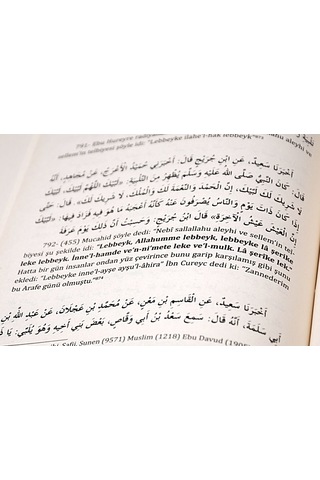 791- Ebu Hureyre
aleyhi ve
sellem'in telbiyesi şöyle idi: "Lebbeyke ilahe'l-hak lebbeyk"
أَخْبَرَنَا سَعِيدٌ، عَنِ ابْنِ جُرَيْجٍ قَالَ: أَخْبَرَنِي حُمَيْدٌ الْأَعْرَجُ، عَنْ مُجَاهِدٍ، أَنَّهُ
قَالَ: كَانَ النَّبِيُّ صَلَّى اللَّهُ عَلَيْهِ وَسَلَّمَ يُظْهِرُ مِنَ التَّلْبِيَةِ: «لَبَّيْكَ اللَّهُمَّ لَبَّيْكَ، لَبَّيْكَ
لَا شَرِيكَ لَكَ لَبَّيْكَ، إِنَّ الْحَمْدَ وَالنِّعْمَةَ لَكَ وَالْمُلْكَ، لَا شَرِيكَ لَكَ». قَالَ:
حَتَّى إِذَا كَانَ ذَاتَ يَوْمٍ وَالنَّاسُ يُصْرَفُونَ عَنْهُ كَأَنَّهُ أَعْجَبَهُ مَا هُوَ فِيهِ فَزَادَ فِيهَا: «لَبَّيْكَ
إِنَّ الْعَيْشَ عَيْشُ الْآخِرَةِ» قَالَ ابْنُ جُرَيْجٍ: وَحَسِبْتُ أَنَّ ذَلِكَ يَوْمَ عَرَفَةَ
792- (455) Mucahid şöyle dedi: "Nebi sallallahu aleyhi ve sellem'in tel-
biyesi şu şekilde idi: "Lebbeyk, Allahumme lebbeyk, lebbeyke lâ şerike
leke lebbeyk. İnne'l-hamde ve'n-ni'mete leke ve'l-mulk. Lâ şerike lek."
Hatta bir gün insanlar ondan yüz çevirince bunu garip karşılamış gibi şunu
ekledi: "Lebbeyke inne'l-ayşe ayşu'l-âhira" İbn Cureyc dedi ki: "Zannederim
bu Arafe günü olmuştu."
أَخْبَرَنَا سَعِيدٌ، عَنِ الْقَاسِمِ بْنِ مَعْنٍ، عَنْ مُحَمَّدِ بْنِ عَجْلَانَ، عَنْ عَبْدِ اللَّهِ بْنِ
أَبِي سَلَمَةَ، أَنَّهُ قَالَ: سَمِعَ سَعْدُ بْنُ أَبِي وَقَّاصٍ، بَعْضَ بَنِي أَخِيهِ وَهُوَ يُلَبِّي: يَا ذَا
Şafii, Sunen (9571) Muslim (1218) Ebu Davud